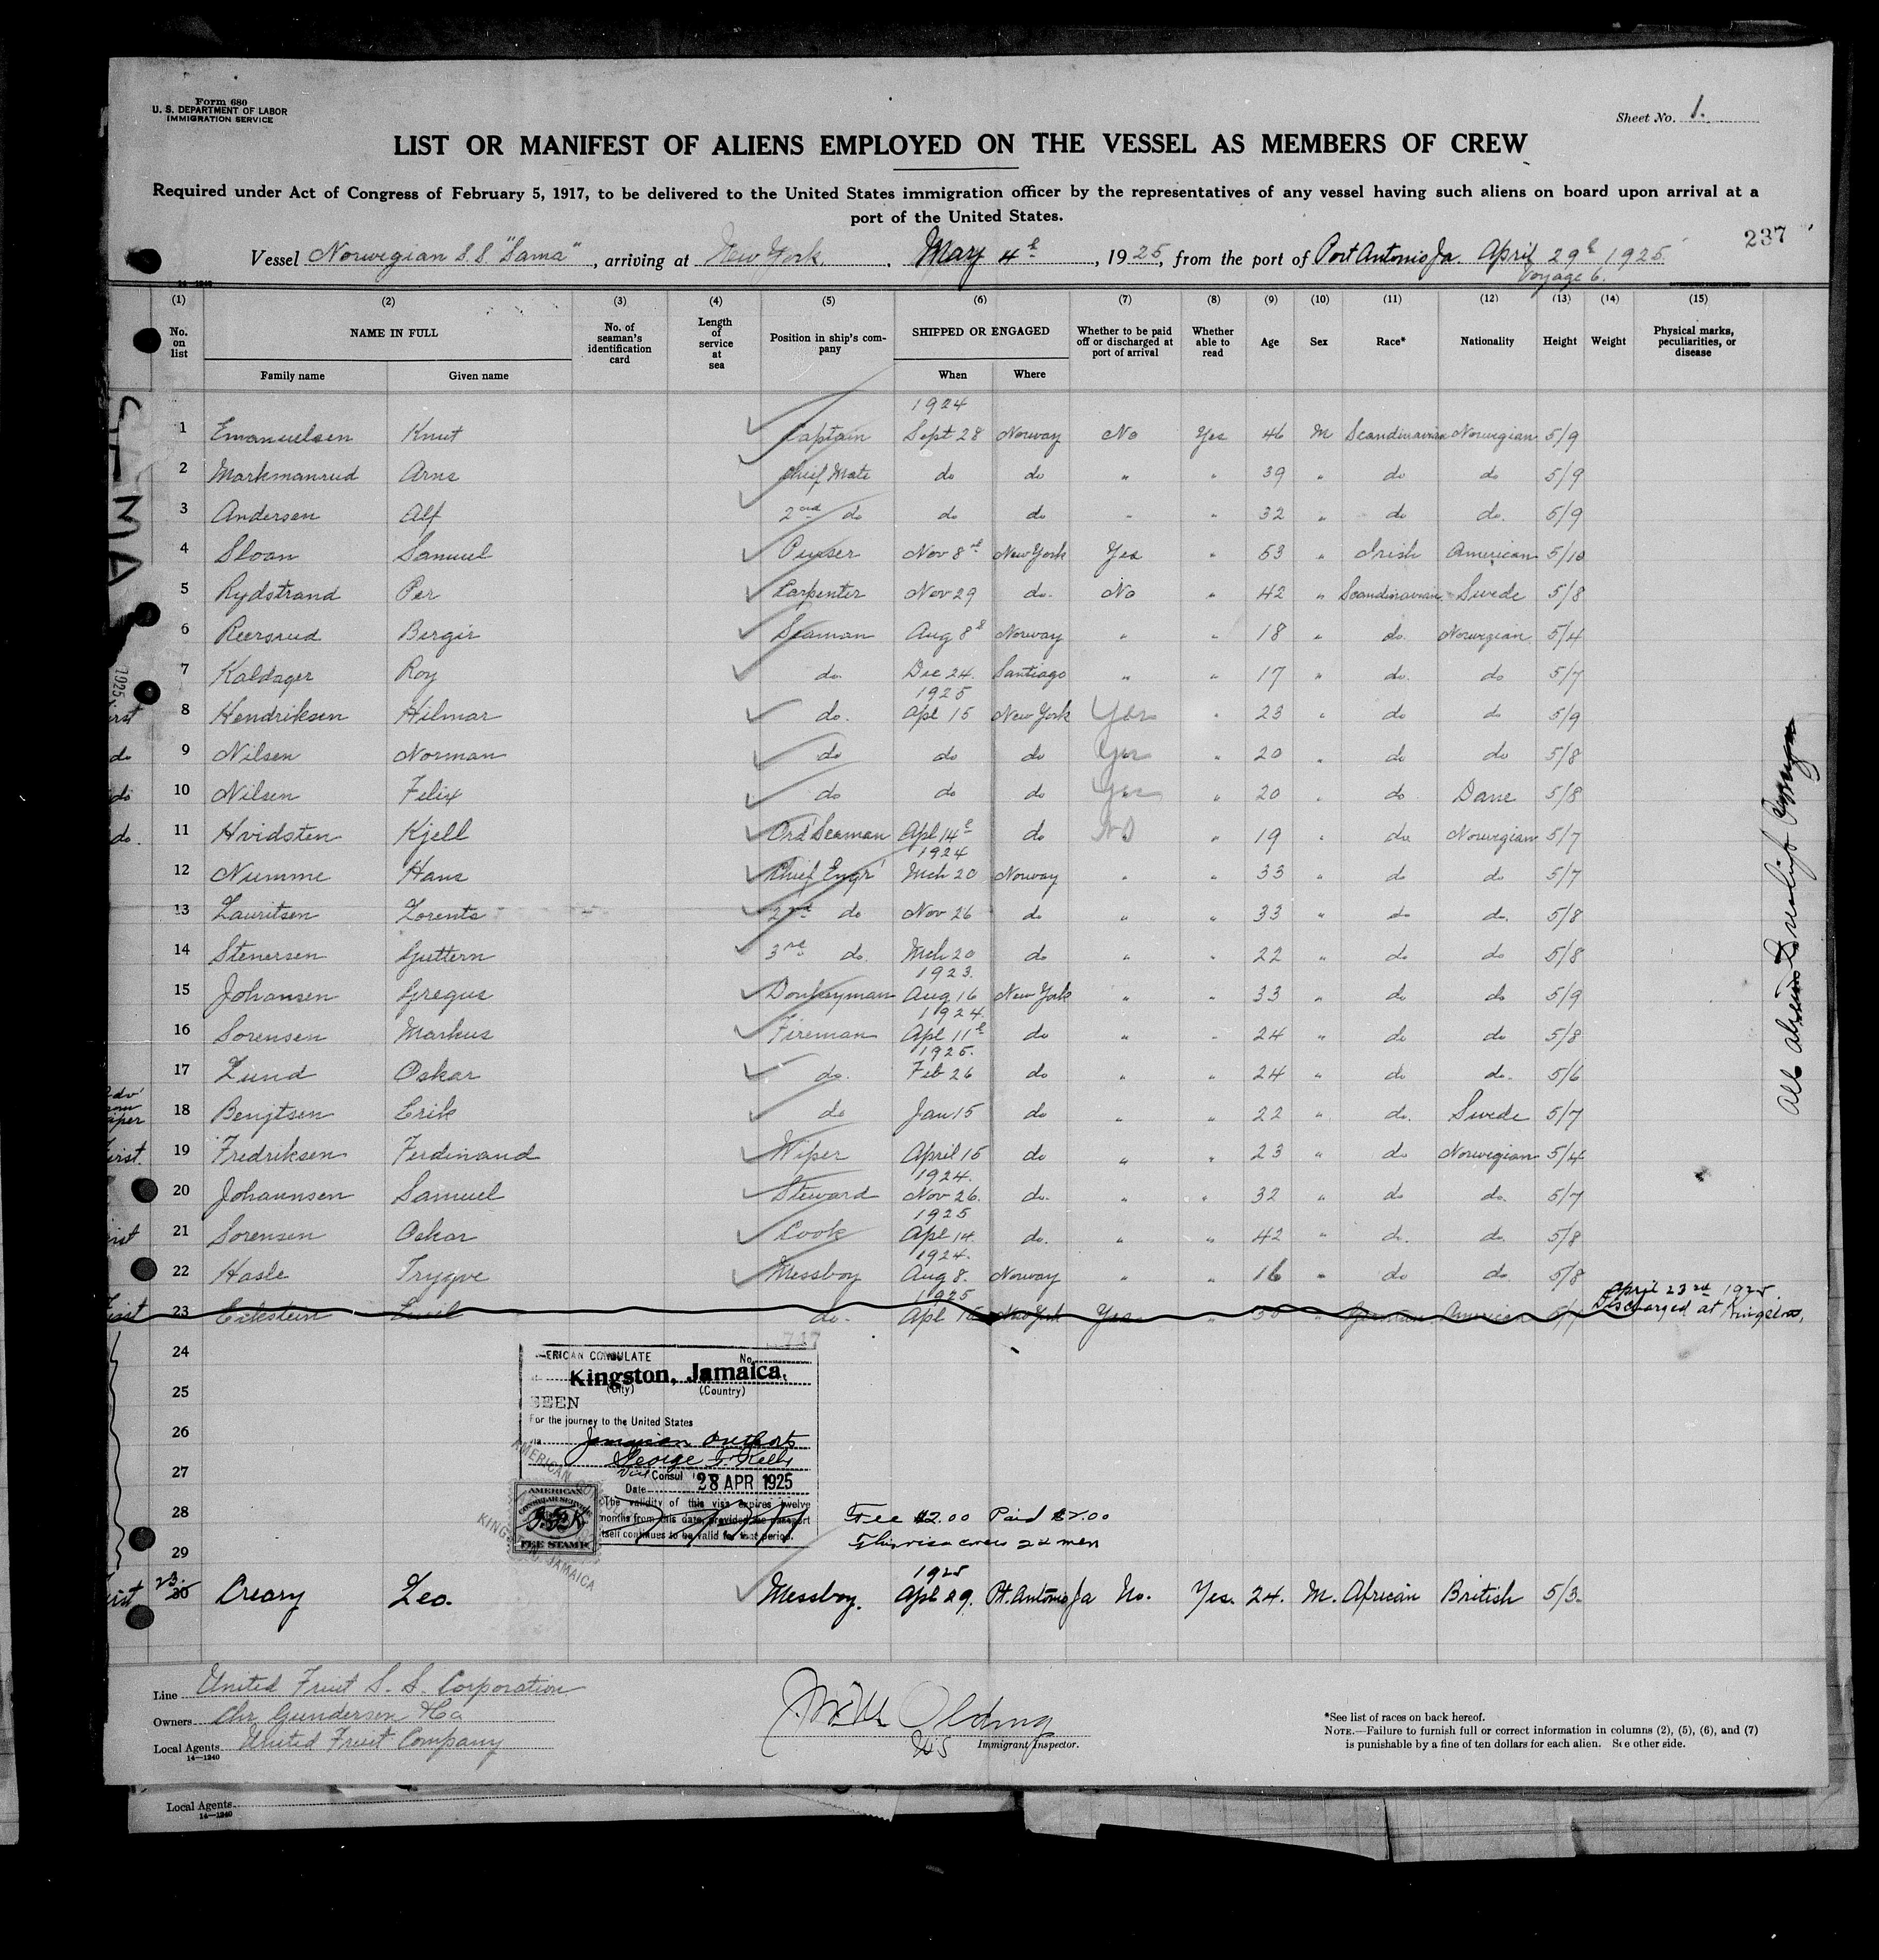 Form 680
U. S. DEPARTMENT OF LABOR
IMMIGRATION SERVICE
Sheet No. 1.
LIST OR MANIFEST OF ALIENS EMPLOYED ON THE VESSEL AS MEMBERS OF CREW
Required under Act of Congress of February 5, 1917, to be delivered to the United States immigration officer by the representatives of any vessel having such aliens on board upon arrival at a
port of the United States.
237
Vessel Norwegian S.S "Sama", arriving at New York, May 4th, 1925, from the port of Port Antonio Ja. April 29th 1925.
Voyage 6.
(1) (2) (3) (4) (5) (6) (7) (8) (9) (10) (11) (12) (13) (14) (15)
No. on list NAME IN FULL No. of seaman's identification card Length of service at sea Position in ship's company SHIPPED OR ENGAGED Whether to be paid off or discharged at port of arrival Whether able to read Age Sex Race* Nationality Height Weight Physical marks, peculiarities, or disease
Family name Given name When Where
1924
1 Emanuelsen Knut Captain Sept 28 Norway No Yes 46 M Scandinavian Norwegian 5/9
2 Markmanrud Arne Chief Mate do do " " 39 " do do 5/9
3 Andersen Alf 2nd do do do " " 32 " do do. 5/9
4 Sloan Samuel Purser Nov 8th New York Yes " 53 " Irish American 5/10
5 Rydstrand Per Carpenter Nov 29 do. No " 42 " Scandinavian Swede 5/8
6 Reersrud Birgir Seaman Aug 8th Norway " " 18 " do. Norwegian 5/4
7 Kaldager Roy do. Dec 24. Santiago " " 17 " do. do 5/7
1925
8 Hendriksen Hilmar do. Apl 15 New York Yes " 23 " do do 5/9
9 Nilsen Norman do do do Yes " 20 " do do 5/8
10 Nilsen Felix do do do Yes " 20 " do Dane 5/8
11 Hvidsten Kjell Ord Seaman Apl 14th do No " 19 " do Norwegian 5/7
1924
12 Numme Hans Chief Engr Mch 20 Norway " " 33 " do do 5/7
13 Lauritsen Lorents 2nd do Nov 26 do " " 33 " do do. 5/8
14 Stenersen Guttern 3rd do. Mch 20 do " " 22 " do do 5/8
1923.
15 Johansen Gregus Donkeyman Aug 16 New York " " 33 " do do 5/9
1924.
16 Sorensen Markus Fireman Apl 11th do " " 24 " do do 5/8
1925.
17 Lund Oskar do. Feb 26 do " " 24 " do do. 5/6
18 Bengtsen Erik do Jan 15 do " " 22 " do. Swede 5/7
19 Fredriksen Ferdinand Wiper April 15 do " " 23 " do Norwegian 5/4
1924.
20 Johannsen Samuel Steward Nov 26. do. " " 32 " do do. 5/7
1925
21 Sorensen Oskar Cook Apl 14. do. " " 42 " do. do. 5/8
1924.
22 Hasle Trygve Messboy Aug 8. Norway " " 16 " do do. 5/8
1925
April 23rd 1925.
23 Eckstein Emil do. Apl 15 New York Yes " 30 " German American 5/7 Discharged at Kingston,
24
25
26
27
28
29
AMERICAN CONSULATE No. 717
Kingston, Jamaica.
(City) (Country)
SEEN
For the journey to the United States
Jamaican outports
George F. Kelly
Vice Consul
Date 28 APR 1925
The validity of this visa expires twelve
months from this date, provided the passport
itself continues to be valid for that period.
AMERICAN
CONSULAR SERVICE
FEE STAMP
KINGSTON, JAMAICA
Fee $2.00 Paid $2.00
This visa covers 22 men
1925
23. 30 Creary Leo. Messboy. Apl 29. Pt. Antonio Ja No. Yes. 24. M. African British 5/3.
Line United Fruit S. S. Corporation
Owners Chr Gundersen & Co
Local Agents United Fruit Company
14—1240
Immigrant Inspector.
*See list of races on back hereof.
NOTE.—Failure to furnish full or correct information in columns (2), (5), (6), and (7)
is punishable by a fine of ten dollars for each alien. See other side.
Local Agents
14—1240